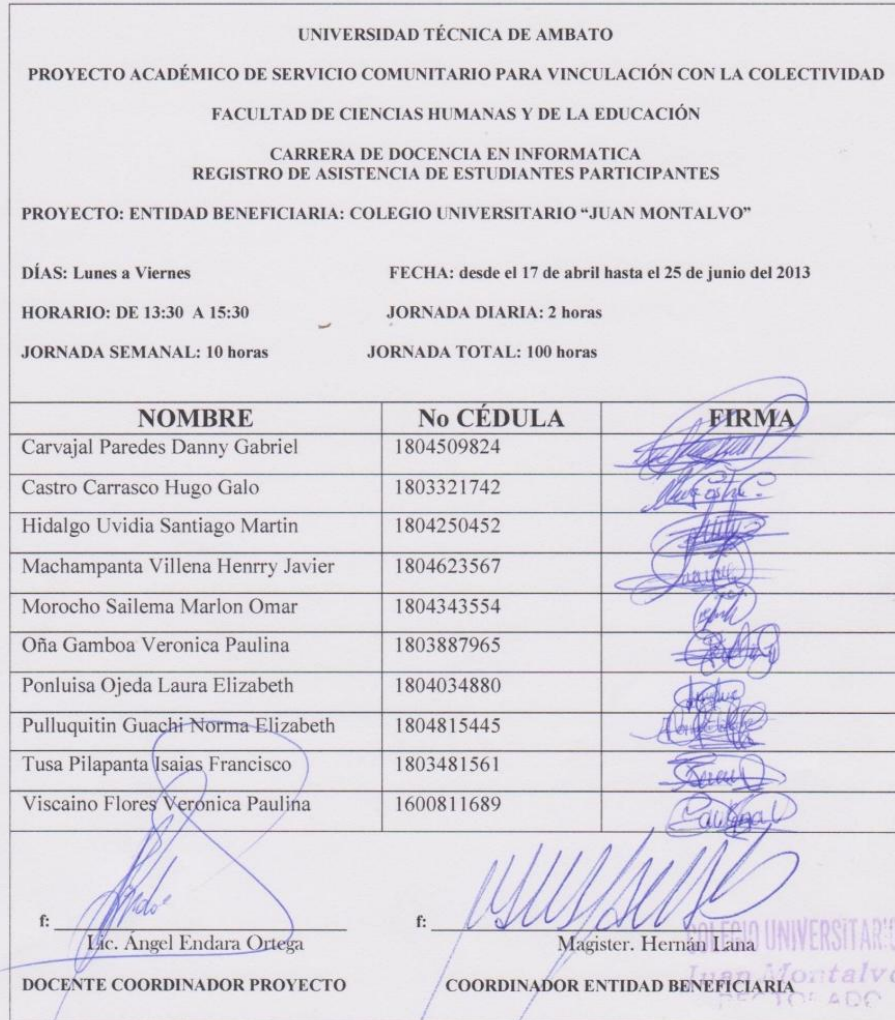 UNIVERSIDAD TÉCNICA DE AMBATO
PROYECTO ACADÉMICO DE SERVICIO COMUNITARIO PARA VINCULACIÓN CON LA COLECTIVIDAD
FACULTAD DE CIENCIAS HUMANAS Y DE LA EDUCACIÓN
CARRERA DE DOCENCIA EN INFORMATICA
REGISTRO DE ASISTENCIA DE ESTUDIANTES PARTICIPANTES
PROYECTO: ENTIDAD BENEFICIARIA: COLEGIO UNIVERSITARIO "JUAN MONTALVO"
DÍAS: Lunes a Viernes FECHA: desde el 17 de abril hasta el 25 de junio del 2013
HORARIO: DE 13:30 A 15:30 JORNADA DIARIA: 2 horas
JORNADA SEMANAL: 10 horas JORNADA TOTAL: 100 horas
NOMBRE No CÉDULA FIRMA
Carvajal Paredes Danny Gabriel 1804509824
Castro Carrasco Hugo Galo 1803321742
Hidalgo Uvidia Santiago Martin 1804250452
Machampanta Villena Henrry Javier 1804623567
Morocho Sailema Marlon Omar 1804343554
Oña Gamboa Veronica Paulina 1803887965
Ponluisa Ojeda Laura Elizabeth 1804034880
Pulluquitin Guachi Norma Elizabeth 1804815445
Tusa Pilapanta Isaias Francisco 1803481561
Viscaino Flores Veronica Paulina 1600811689
f: f:
Lic. Ángel Endara Ortega Magister. Hernán Lana
COLEGIO UNIVERSITARIO
Juan Montalvo
DOCENTE COORDINADOR PROYECTO COORDINADOR ENTIDAD BENEFICIARIA